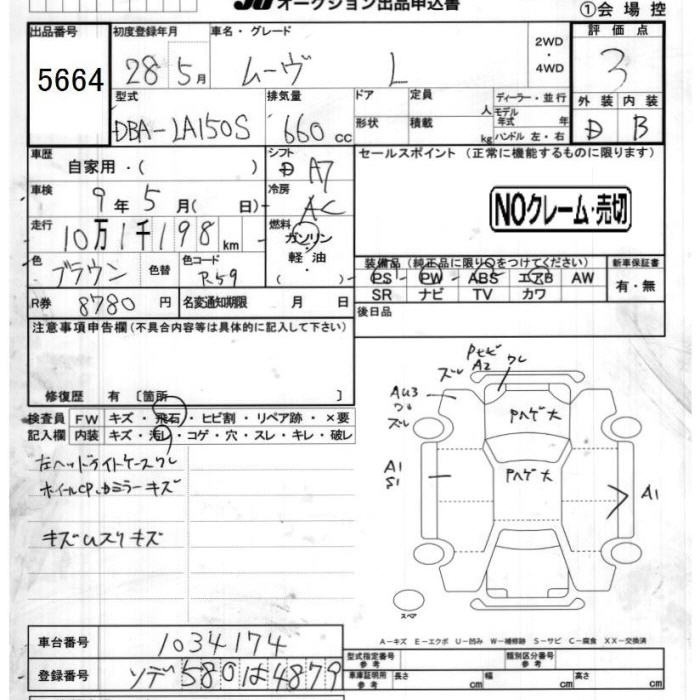 JU オークション出品申込書
①会場控
出品番号 初度登録年月 車名・グレード 評価点
5664 28 5月 ムーヴ L 2WD・4WD 3
型式 排気量 ドア 定員 人 ディーラー・並行 外装 内装
DBA-LA150S 660cc 形状 積載 kg モデル年式 年 ハンドル 左・右 D B
車歴 シフト セールスポイント (正常に機能するものに限ります)
自家用・( ) A7
車検 9年5月(日) 冷房 AC NOクレーム・売切
走行 10万1千198km 燃料 ガソリン・軽油
( )
装備品(純正品に限り○をつけてください) 新車保証書
色 ブラウン 色替 色コード R59 PS PW ABS エアB AW 有・無
SR ナビ TV カワ
R券 8780円 名変通知期限 月 日 後日品
注意事項申告欄(不具合内容等は具体的に記入して下さい)
修復歴 有〔箇所 〕
検査員 FW キズ・飛石・ヒビ割・リペア跡・×要
記入欄 内装 キズ・汚レ・コゲ・穴・スレ・キレ・破レ
左ヘッドライトケースワレ
ホイールCP.カミラーキズ
キズUスリキズ
Pセビ
ズレ A2 ワレ
AU3
ワレ
ズレ
Pハゲ大
A1
S1
Pハゲ大
A1
スペア
A-キズ E-エクボ U-凹み W-補修跡 S-サビ C-腐食 XX-交換済
車台番号 1034174
型式指定番号 参考 類別区分番号 参考
登録番号 ソデ 580 は 4879
車庫証明用 参考 長さ cm 幅 cm 高さ cm